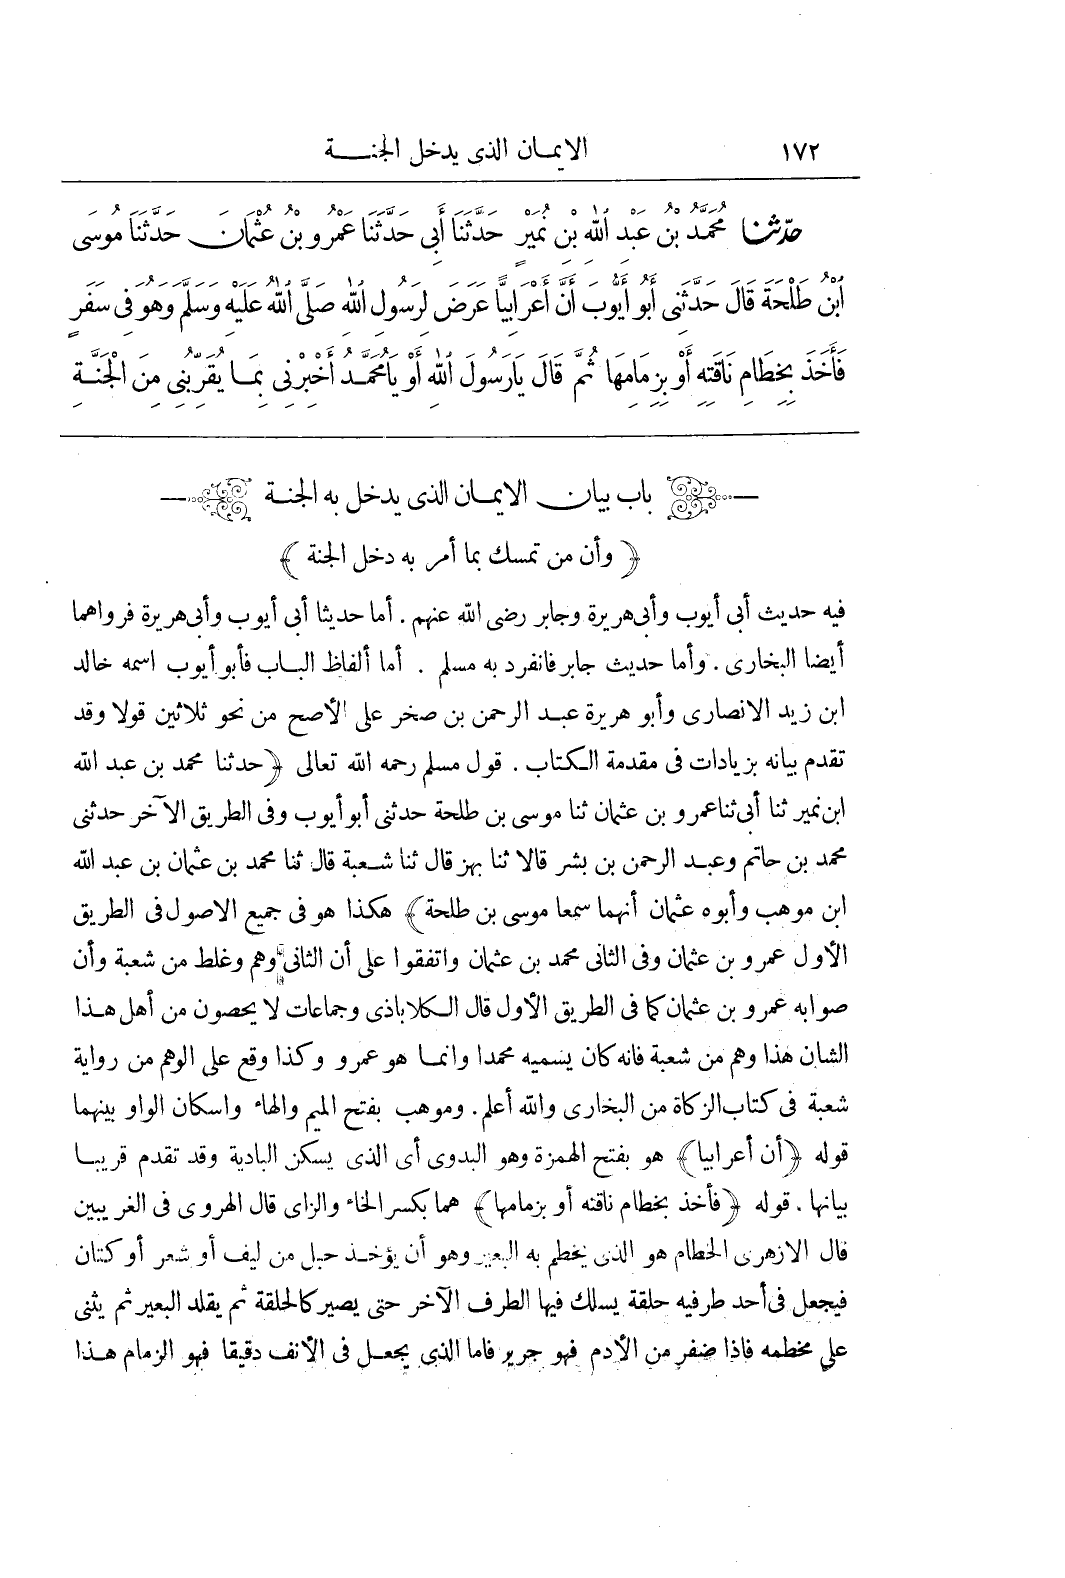 ١٧٢ الايمـان الذى يدخل الجنـــة
حدّثنا مُحَمَّدُ بْنُ عَبْدِ اللهِ بْنِ نُمَيْرٍ حَدَّثَنَا أَبِى حَدَّثَنَا عَمْرُو بْنُ عُثْمَانَ حَدَّثَنَا مُوسَى
ابْنُ طَلْحَةَ قَالَ حَدَّثَنِى أَبُو أَيُّوبَ أَنَّ أَعْرَابِيًّا عَرَضَ لِرَسُولِ اللهِ صَلَّى اللهُ عَلَيْهِ وَسَلَّمَ وَهُوَ فِى سَفَرٍ
فَأَخَذَ بِخِطَامِ نَاقَتِهِ أَوْ بِزِمَامِهَا ثُمَّ قَالَ يَارَسُولَ اللهِ أَوْ يَامُحَمَّدُ أَخْبِرْنِى بِمَـا يُقَرِّبُنِى مِنَ الْجَنَّـةِ
باب بيان الايمـان الذى يدخل به الجنـة
﴿ وأن من تمسك بما أمر به دخل الجنة ﴾
فيه حديث أبى أيوب وأبى هريرة وجابر رضى الله عنهم . أما حديثا أبى أيوب وأبى هريرة فرواهما
أيضا البخارى . وأما حديث جابر فانفرد به مسلم . أما ألفاظ البـاب فأبو أيوب اسمه خالد
ابن زيد الانصارى وأبو هريرة عبـد الرحمن بن صخر على الأصح من نحو ثلاثين قولا وقد
تقدم بيانه بزيادات فى مقدمة الـكتاب . قول مسلم رحمه الله تعالى ﴿ حدثنا محمد بن عبد الله
ابن نمير ثنا أبى ثنا عمرو بن عثمان ثنا موسى بن طلحة حدثنى أبو أيوب وفى الطريق الآخر حدثنى
محمد بن حاتم وعبـد الرحمن بن بشر قالا ثنا بهز قال ثنا شـعبة قال ثنا محمد بن عثمان بن عبد الله
ابن موهب وأبوه عثمان أنهما سمعا موسى بن طلحة ﴾ هكذا هو فى جميع الاصول فى الطريق
الأول عمرو بن عثمان وفى الثانى محمد بن عثمان واتفقوا على أن الثانى وهم وغلط من شعبة وأن
صوابه عمرو بن عثمان كما فى الطريق الأول قال الـكلاباذى وجماعات لا يحصون من أهل هـذا
الشان هذا وهم من شعبة فانه كان يسميه محمدا وانمـا هو عمرو وكذا وقع على الوهم من رواية
شعبة فى كتاب الزكاة من البخارى والله أعلم . وموهب بفتح الميم والهاء واسكان الواو بينهما
قوله ﴿ أن أعرابيا ﴾ هو بفتح الهمزة وهو البدوى أى الذى يسكن البادية وقد تقدم قريبـا
بيانها . قوله ﴿ فأخذ بخطام ناقته أو بزمامها ﴾ هما بكسر الخاء والزاى قال الهروى فى الغريبين
قال الازهرى الخطام هو الذى يخطم به البعير وهو أن يؤخـذ حبل من ليف أو شعر أو كتان
فيجعل فى أحد طرفيه حلقة يسلك فيها الطرف الآخر حتى يصير كالحلقة ثم يقلد البعير ثم يثنى
على مخطمه فاذا ضفر من الأدم فهو جرير فاما الذى يجعـل فى الأنف دقيقا فهو الزمام هـذا